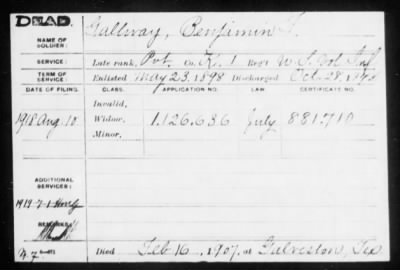 DEAD.
NAME OF SOLDIER: Gallway, Benjamin F.
SERVICE: Late rank, Pvt. Co. K, 1 Reg't U.S. Vol. Inf.
TERM OF SERVICE: Enlisted May 23, 1898 Discharged Oct. 28, 1898
DATE OF FILING. CLASS. APPLICATION NO. LAW CERTIFICATE NO.
Invalid,
1918 Aug. 10. Widow, 1.126.636 July 881.710
Minor.
ADDITIONAL SERVICES:
1919-7-1
REMARKS:
Died Feb 16, 1907, at Galveston, Tex